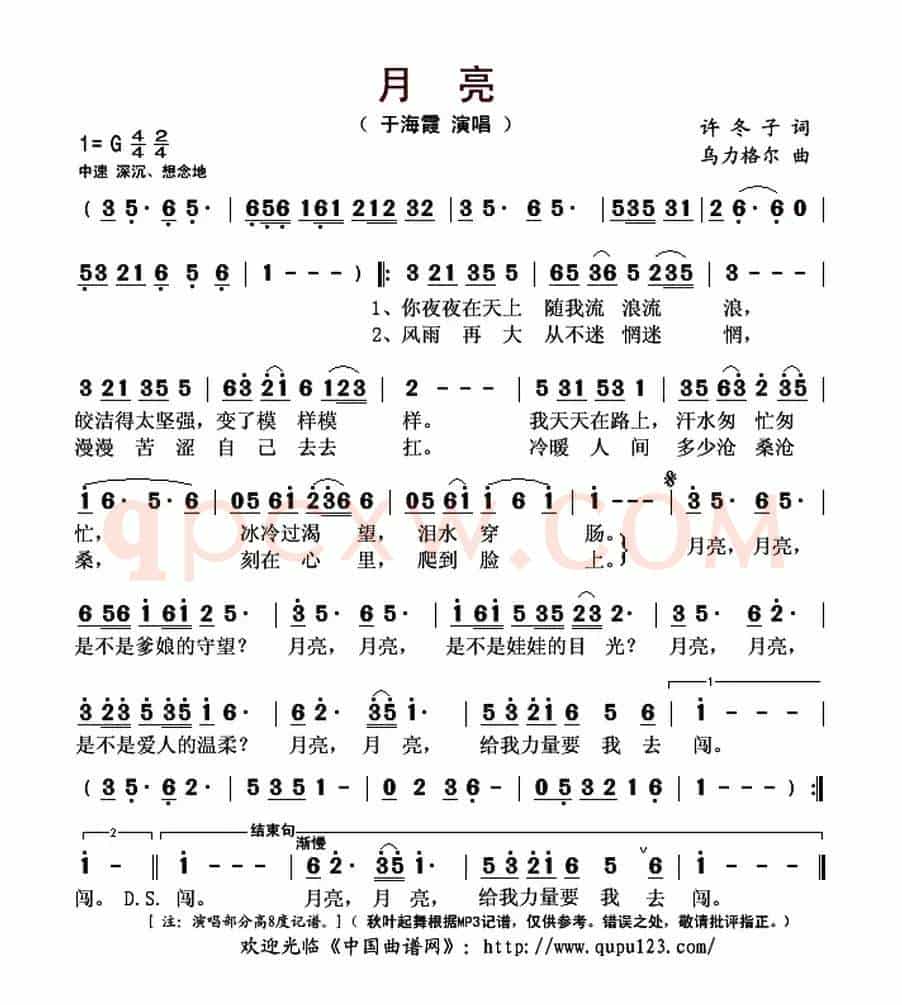 月 亮
( 于海霞 演唱 )
许冬子 词
1=G 4/4 2/4
乌力格尔 曲
中速 深沉、想念地
( 3 5· 6 5· | 656 161 212 32 | 3 5· 6 5· | 535 31 | 2 6· 6 0 |
53 21 6 5 6 | 1 - - - ) ‖: 3 21 35 5 | 65 36 5 235 | 3 - - - |
1、你夜夜在天上 随我流 浪流 浪,
2、风雨 再 大 从不迷 惘迷 惘,
3 21 35 5 | 63 21 6 123 | 2 - - - | 5 31 53 1 | 35 63 2 35 |
皎洁得太坚强, 变了模 样模 样。 我天天在路上, 汗水匆 忙匆
漫漫 苦 涩 自 己 去去 扛。 冷暖 人 间 多少沧 桑沧
1 6· 5· 6 | 05 61 236 6 | 05 61 1 6 1 | 1 - - - | 3 5· 6 5· |
忙, 冰冷过渴 望, 泪水 穿 肠。 月亮, 月亮,
桑, 刻在 心 里, 爬到 脸 上。
qpcxw.COM
6 56 1 61 2 5· | 3 5· 6 5· | 1 61 5 35 23 2· | 3 5· 6 2· |
是不是爹娘的守望? 月亮, 月亮, 是不是娃娃的目 光? 月亮, 月亮,
3 23 5 35 1 6· | 6 2· 35 1· | 5 3 21 6 5 6 | 1 1 - - - |
是不是爱人的温柔? 月亮, 月 亮, 给我力量要 我 去 闯。
( 3 5· 6 2· | 5 35 1 - | 0 2 3 6· | 05 3 21 6 | 1 - - - ) :‖
2 结束句
渐慢
1 - ‖ 1 - - - | 6 2· 35 1· | 5 3 21 6 5 ∨ 6 | 1 - - - ‖
闯。 D.S. 闯。 月亮, 月 亮, 给我力量要 我 去 闯。
[ 注: 演唱部分高8度记谱。] ( 秋叶起舞根据MP3记谱, 仅供参考。错误之处, 敬请批评指正。)
欢迎光临《中国曲谱网》: http://www.qupu123.com/